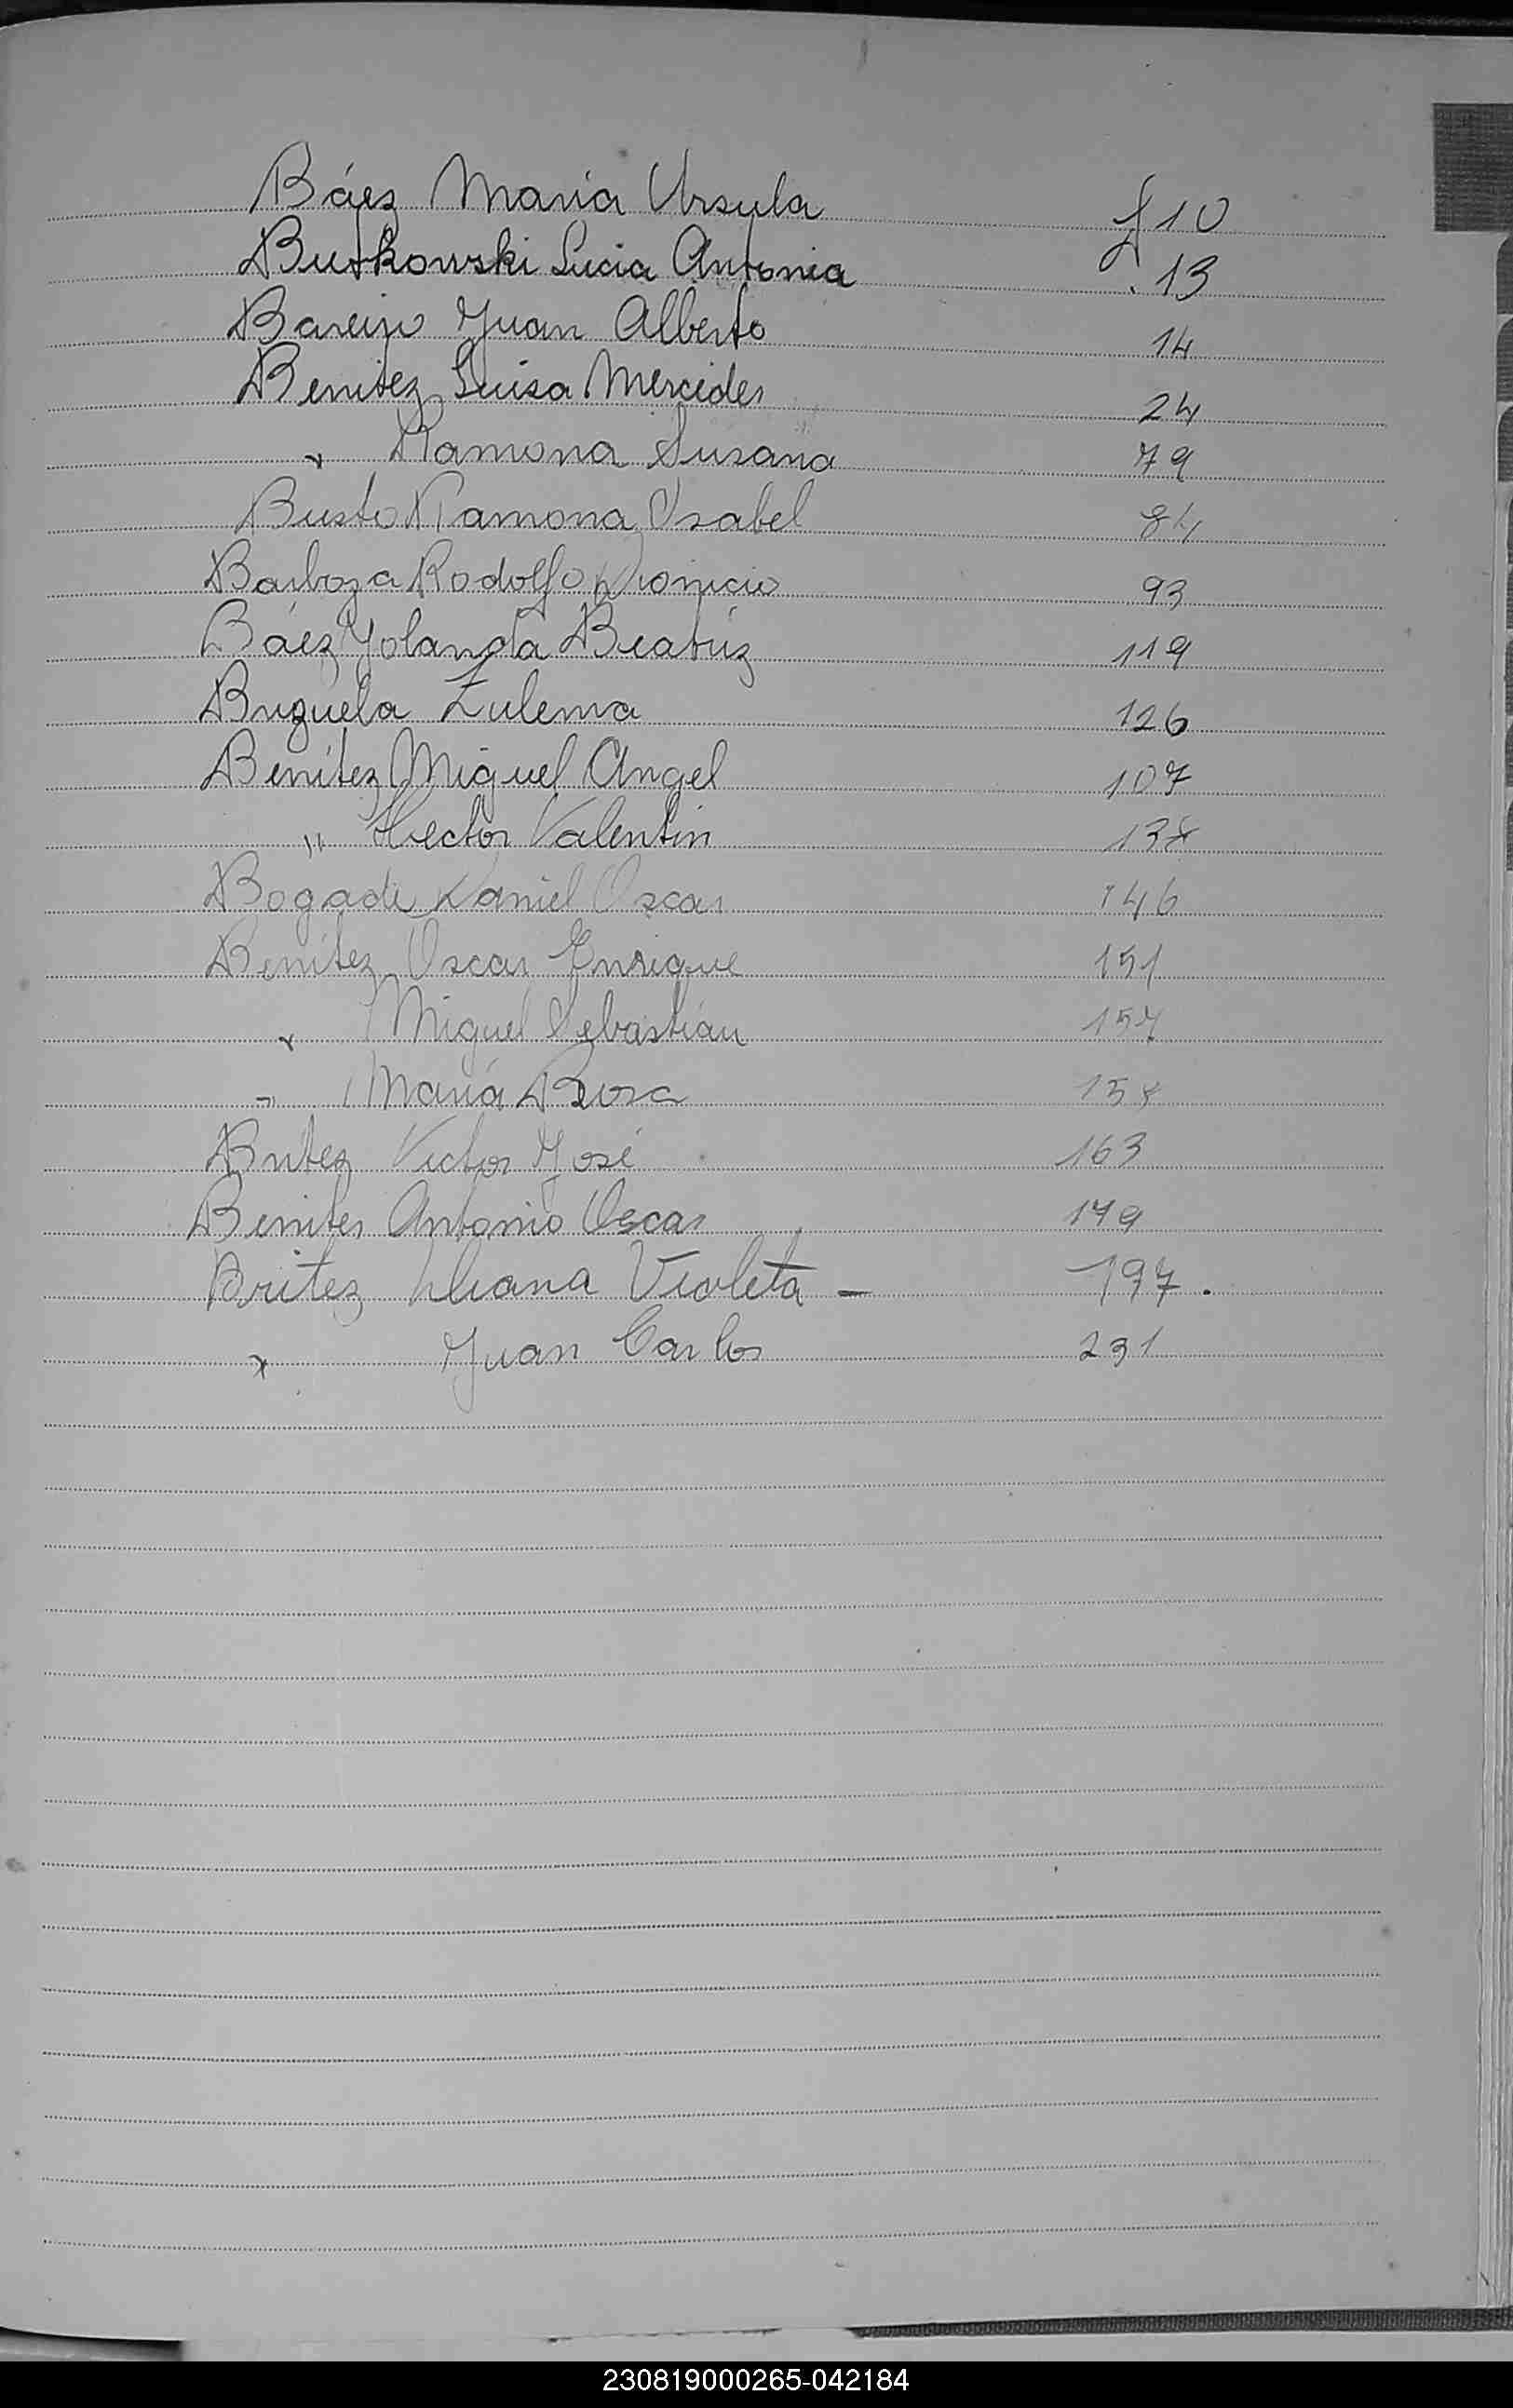 Báez María Ursula f 10
Butkowski Lucia Antonia 13
Bareiro Juan Alberto 14
Benitez Luisa Mercedes 24
" Ramona Susana 79
Busto Ramona Isabel 84
Barboza Rodolfo Dionicio 93
Báez Yolanda Beatríz 119
Brizuela Zulema 126
Benítez Miguel Angel 107
" Hector Valentin 138
Bogado Daniel Oscar 146
Benítez Oscar Enrique 151
" Miguel Sebastián 157
" María Rosa 158
Britez Victor José 163
Benites Antonio Oscar 179
Britez Liliana Violeta - 197.
" Juan Carlos 231
230819000265-042184